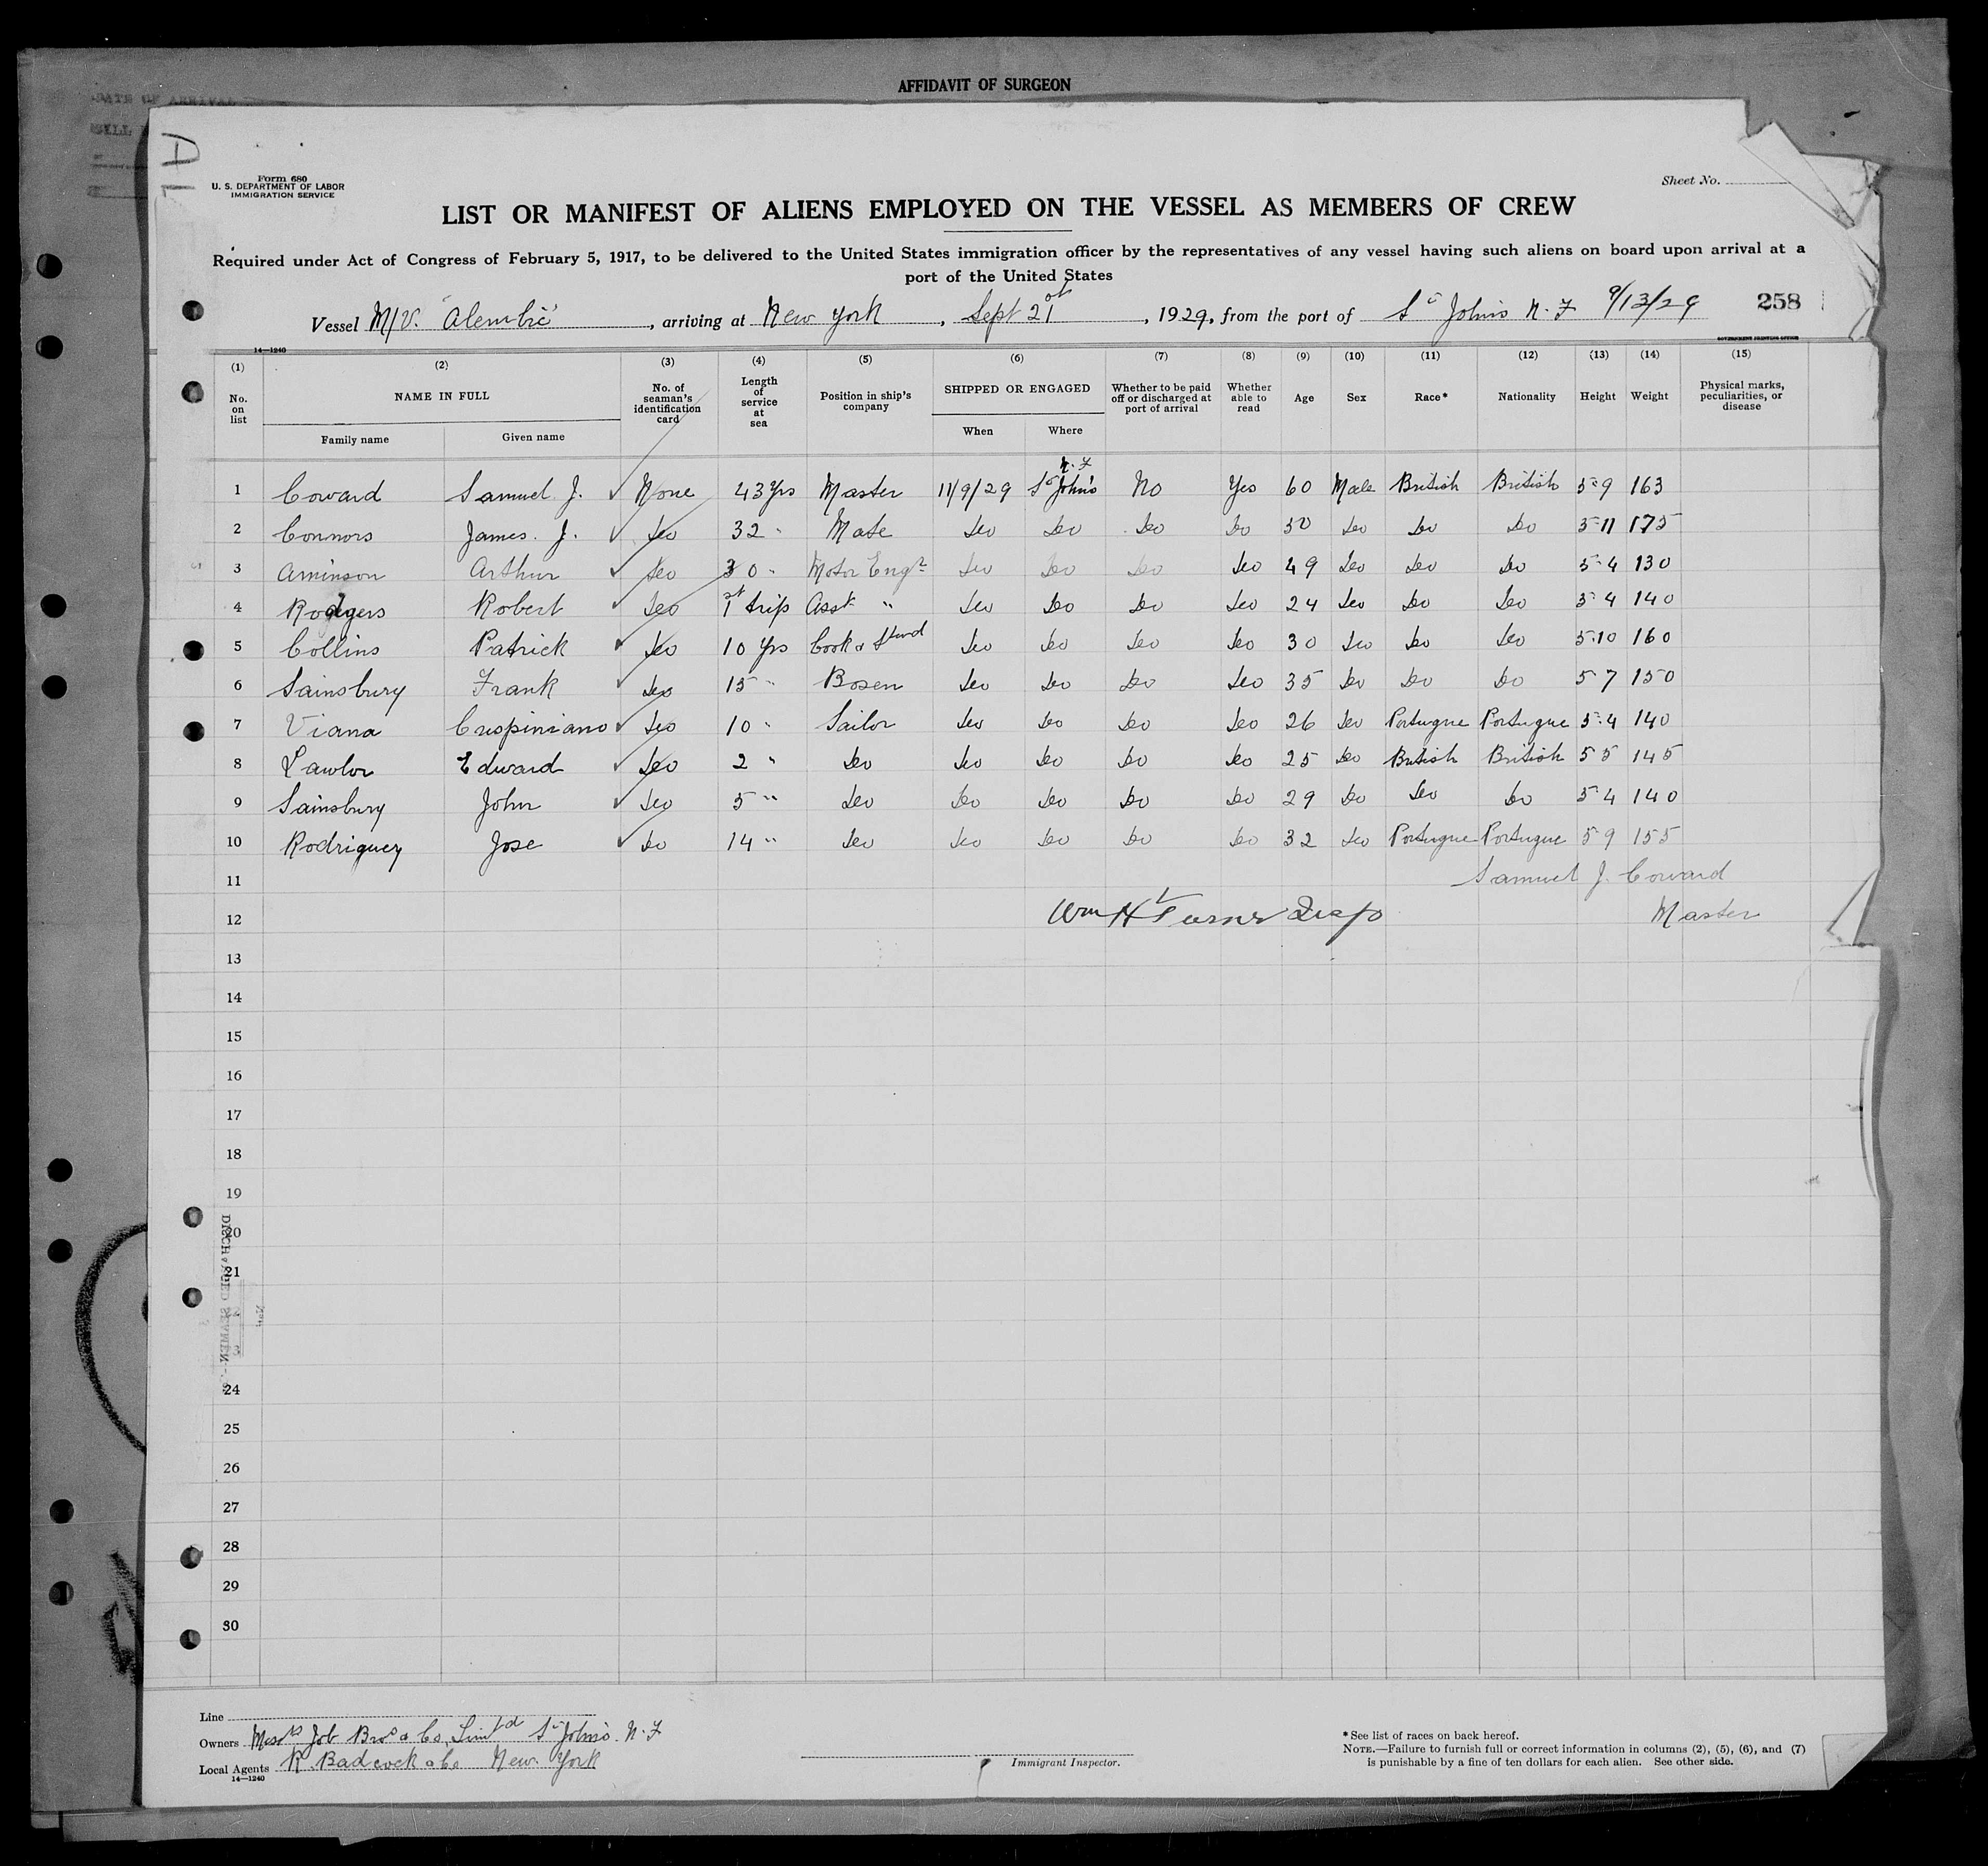 AFFIDAVIT OF SURGEON
AL
Form 680
U. S. DEPARTMENT OF LABOR
IMMIGRATION SERVICE
Sheet No.
LIST OR MANIFEST OF ALIENS EMPLOYED ON THE VESSEL AS MEMBERS OF CREW
Required under Act of Congress of February 5, 1917, to be delivered to the United States immigration officer by the representatives of any vessel having such aliens on board upon arrival at a
port of the United States
Vessel M/V. "Alembic", arriving at New York, Sept 21st, 1929, from the port of St John's N.F 9/13/29 258
14—1240 GOVERNMENT PRINTING OFFICE
(1) (2) (3) (4) (5) (6) (7) (8) (9) (10) (11) (12) (13) (14) (15)
No. on list NAME IN FULL Family name Given name No. of seaman's identification card Length of service at sea Position in ship's company SHIPPED OR ENGAGED When Where Whether to be paid off or discharged at port of arrival Whether able to read Age Sex Race* Nationality Height Weight Physical marks, peculiarities, or disease
1 Coward Samuel J. None 43 Yrs Master 11/9/29 St John's N.F No Yes 60 Male British British 5-9 163
2 Connors James. J. Do 32 " Mate Do Do Do Do 50 Do Do Do 5-11 175
3 Aminson Arthur Do 30 " Motor Engr Do Do Do Do 49 Do Do Do 5-4 130
4 Rodgers Robert Do 1st trip Asst " Do Do Do Do 24 Do Do Do 5-4 140
5 Collins Patrick Do 10 Yrs Cook & Stwd Do Do Do Do 30 Do Do Do 5-10 160
6 Sainsbury Frank Do 15 " Bosen Do Do Do Do 35 Do Do Do 5 7 150
7 Viana Cuspiniano Do 10 " Sailor Do Do Do Do 26 Do Portugue Portugue 5-4 140
8 Lawlor Edward Do 2 " Do Do Do Do Do 25 Do British British 5 5 145
9 Sainsbury John Do 5 " Do Do Do Do Do 29 Do Do Do 5 4 140
10 Rodriguez Jose Do 14 " Do Do Do Do Do 32 Do Portugue Portugue 5 9 155
11 Samuel J. Coward
12 Wm H Turner Master
13
14
15
16
17
18
19
20
21
24
25
26
27
28
29
30
DISCHARGED SEAMEN
Line
Owners Messrs Job Bros & Co, Limtd St John's. N.F
Local Agents R. Badcock & Co New York
14—1240
Immigrant Inspector.
* See list of races on back hereof.
NOTE.—Failure to furnish full or correct information in columns (2), (5), (6), and (7)
is punishable by a fine of ten dollars for each alien. See other side.